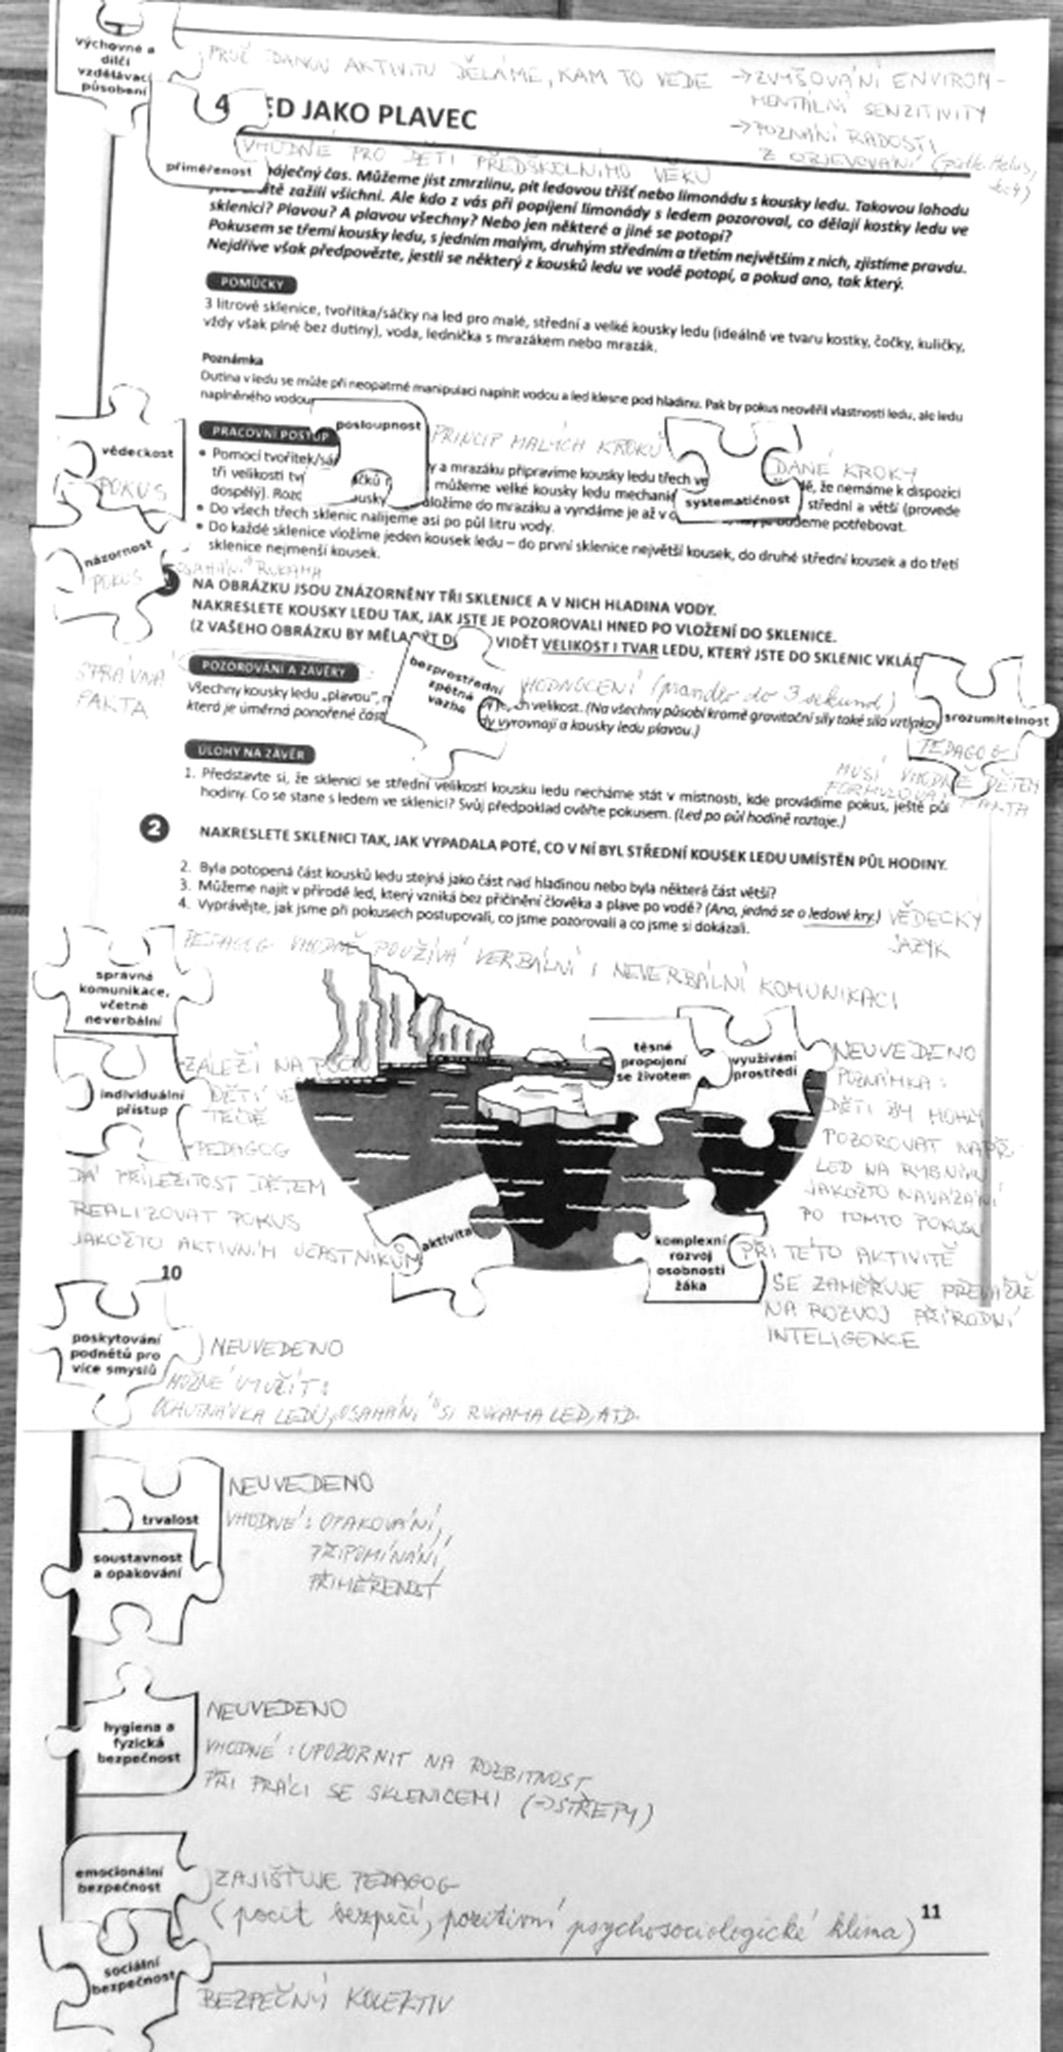 výchovné a
dílčí
vzdělávací
působení
PROČ DANOU AKTIVITU DĚLÁME, KAM TO VEDE → ZVYŠOVÁNÍ ENVIRON-
MENTÁLNÍ SENZITIVITY
→ POZNÁNÍ RADOSTI
Z OBJEVOVÁNÍ
4 ED JAKO PLAVEC
VHODNÉ PRO DĚTI PŘEDŠKOLNÍHO VĚKU
přiměřenost
báječný čas. Můžeme jíst zmrzlinu, pít ledovou tříšť nebo limonádu s kousky ledu. Takovou lahodu
zažili všichni. Ale kdo z vás při popíjení limonády s ledem pozoroval, co dělají kostky ledu ve
sklenici? Plavou? A plavou všechny? Nebo jen některé a jiné se potopí?
Pokusem se třemi kousky ledu, s jedním malým, druhým středním a třetím největším z nich, zjistíme pravdu.
Nejdříve však předpovězte, jestli se některý z kousků ledu ve vodě potopí, a pokud ano, tak který.
POMŮCKY
3 litrové sklenice, tvořítka/sáčky na led pro malé, střední a velké kousky ledu (ideálně ve tvaru kostky, čočky, kuličky,
vždy však plné bez dutiny), voda, lednička s mrazákem nebo mrazák.
Poznámka
Dutina v ledu se může při neopatrné manipulaci naplnit vodou a led klesne pod hladinu. Pak by pokus neověřil vlastnosti ledu, ale ledu
naplněného vodou
posloupnost
PRINCIP MALÝCH KROKŮ
vědeckost
POKUS
PRACOVNÍ POSTUP
DANÉ KROKY
systematičnost
• Pomocí tvořítek/sá y a mrazáku připravíme kousky ledu třech ve že nemáme k dispozici
tři velikosti můžeme velké kousky ledu mechanic střední a větší (provede
dospělý). usky ložíme do mrazáku a vyndáme je až v budeme potřebovat.
• Do všech třech sklenic nalijeme asi po půl litru vody.
• Do každé sklenice vložíme jeden kousek ledu – do první sklenice největší kousek, do druhé střední kousek a do třetí
sklenice nejmenší kousek.
názornost
POKUS
OSAHÁNÍ RUKAMA
NA OBRÁZKU JSOU ZNÁZORNĚNY TŘI SKLENICE A V NICH HLADINA VODY.
NAKRESLETE KOUSKY LEDU TAK, JAK JSTE JE POZOROVALI HNED PO VLOŽENÍ DO SKLENICE.
(Z VAŠEHO OBRÁZKU BY MĚLA VIDĚT VELIKOST I TVAR LEDU, KTERÝ JSTE DO SKLENIC VKLÁD
SPRÁVNÁ
FAKTA
POZOROVÁNÍ A ZÁVĚRY
bezprostřední
zpětná
vazba
HODNOCENÍ
do 3 sekund)
srozumitelnost
Všechny kousky ledu „plavou", ch velikost. (Na všechny působí kromě gravitační síly také síla vztlaková
která je úměrná ponořené část vyrovnají a kousky ledu plavou.)
PEDAGOG
MUSÍ VHODNĚ DĚTEM
FORMULOVAT FAKTA
ÚLOHY NA ZÁVĚR
1. Představte si, že sklenici se střední velikostí kousku ledu necháme stát v místnosti, kde provádíme pokus, ještě půl
hodiny. Co se stane s ledem ve sklenici? Svůj předpoklad ověřte pokusem. (Led po půl hodině roztaje.)
2 NAKRESLETE SKLENICI TAK, JAK VYPADALA POTÉ, CO V NÍ BYL STŘEDNÍ KOUSEK LEDU UMÍSTĚN PŮL HODINY.
2. Byla potopená část kousků ledu stejná jako část nad hladinou nebo byla některá část větší?
3. Můžeme najít v přírodě led, který vzniká bez přičinění člověka a plave po vodě? (Ano, jedná se o ledové kry.)
4. Vyprávějte, jak jsme při pokusech postupovali, co jsme pozorovali a co jsme si dokázali.
VĚDECKÝ
JAZYK
správná
komunikace,
včetně
neverbální
PEDAGOG VHODNĚ POUŽÍVÁ VERBÁLNÍ I NEVERBÁLNÍ KOMUNIKACI
těsné
propojení
se životem
využívání
prostředí
NEUVEDENO
POZNÁMKA:
DĚTI BY MOHLY
POZOROVAT NAPŘ.
LED NA RYBNÍKU
JAKOŽTO NAVÁZÁNÍ
PO TOMTO POKUSU
individuální
přístup
- ZÁLEŽÍ NA POČTU
DĚTÍ VE
TŘÍDĚ
- PEDAGOG
DÁ PŘÍLEŽITOST DĚTEM
REALIZOVAT POKUS
JAKOŽTO AKTIVNÍM ÚČASTNÍKŮM
aktivita
komplexní
rozvoj
osobnosti
žáka
PŘI TÉTO AKTIVITĚ
SE ZAMĚŘUJE PŘEVÁŽNĚ
NA ROZVOJ PŘÍRODNÍ
INTELIGENCE
10
poskytování
podnětů pro
více smyslů
NEUVEDENO
MOŽNÉ VYUŽÍT:
OCHUTNÁVKA LEDU, OSAHÁNÍ SI RUKAMA LED, ATD.
trvalost
soustavnost
a opakování
NEUVEDENO
VHODNÉ: OPAKOVÁNÍ,
PŘIPOMÍNÁNÍ,
PŘIMĚŘENOST
hygiena a
fyzická
bezpečnost
NEUVEDENO
VHODNÉ: UPOZORNIT NA ROZBITNOST
PŘI PRÁCI SE SKLENICEMI (→ STŘEPY)
emocionální
bezpečnost
ZAJIŠŤUJE PEDAGOG
(pocit bezpečí, pozitivní psychosociologické klima)
11
sociální
bezpečnost
BEZPEČNÝ KOLEKTIV